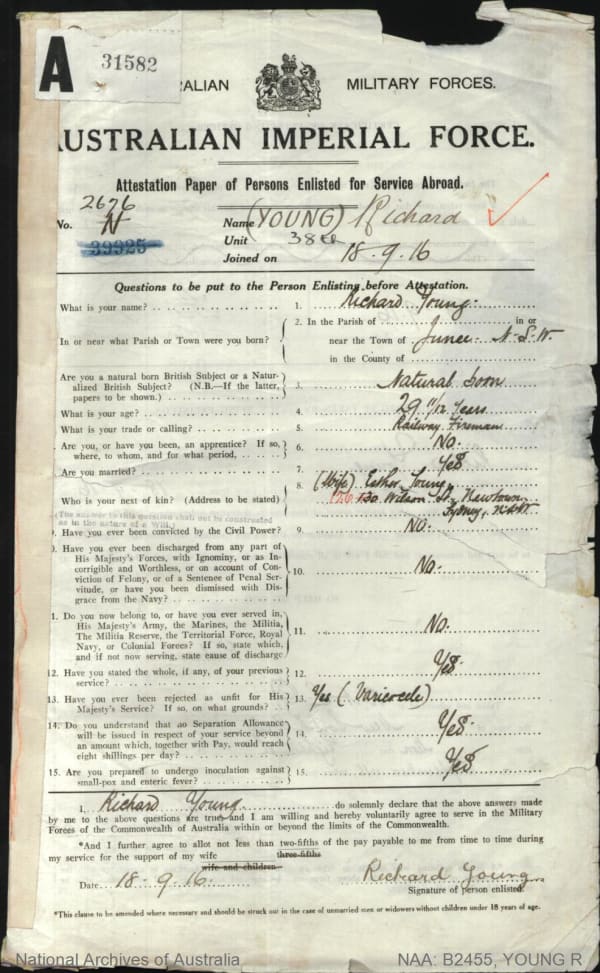 A
31582
RALIAN MILITARY FORCES.
AUSTRALIAN IMPERIAL FORCE.
Attestation Paper of Persons Enlisted for Service Abroad.
2676
No. N Name (YOUNG) Richard
39925 Unit 38
Joined on 18.9.16
Questions to be put to the Person Enlisting before Attestation.
What is your name? 1. Richard Young.
In or near what Parish or Town were you born? 2. In the Parish of in or
near the Town of Junee N.S.W.
in the County of
Are you a natural born British Subject or a Natur-
alized British Subject? (N.B.—If the latter,
papers to be shown.) 3. Natural born
What is your age? 4. 29 11/12 Years
What is your trade or calling? 5. Railway Fireman
Are you, or have you been, an apprentice? If so,
where, to whom, and for what period, 6. No.
Are you married? 7. Yes
Who is your next of kin? (Address to be stated) 8. (Wife) Esther Young
Wilson St. Newtown
Sydney, N.S.W.
(The answer to this question shall not be construed
as in the nature of a Will.)
9. Have you ever been convicted by the Civil Power? 9. No.
0. Have you ever been discharged from any part of
His Majesty's Forces, with Ignominy, or as In-
corrigible and Worthless, or on account of Con-
viction of Felony, or of a Sentence of Penal Ser-
vitude, or have you been dismissed with Dis-
grace from the Navy? 10. No.
1. Do you now belong to, or have you ever served in,
His Majesty's Army, the Marines, the Militia,
The Militia Reserve, the Territorial Force, Royal
Navy, or Colonial Forces? If so, state which,
and if not now serving, state cause of discharge 11. No.
12. Have you stated the whole, if any, of your previous
service? 12. Yes.
13. Have you ever been rejected as unfit for His
Majesty's Service? If so, on what grounds? 13. Yes (Varicocele)
14. Do you understand that no Separation Allowance
will be issued in respect of your service beyond
an amount which, together with Pay, would reach
eight shillings per day? 14. Yes.
15. Are you prepared to undergo inoculation against
small-pox and enteric fever? 15. Yes
I, Richard Young do solemnly declare that the above answers made
by me to the above questions are true, and I am willing and hereby voluntarily agree to serve in the Military
Forces of the Commonwealth of Australia within or beyond the limits of the Commonwealth.
*And I further agree to allot not less than two-fifths of the pay payable to me from time to time during
three-fifths
my service for the support of my wife
wife and children
Date 18.9.16. Richard Young
Signature of person enlisted.
*This clause to be amended where necessary and should be struck out in the case of unmarried men or widowers without children under 18 years of age.
National Archives of Australia NAA: B2455, YOUNG R